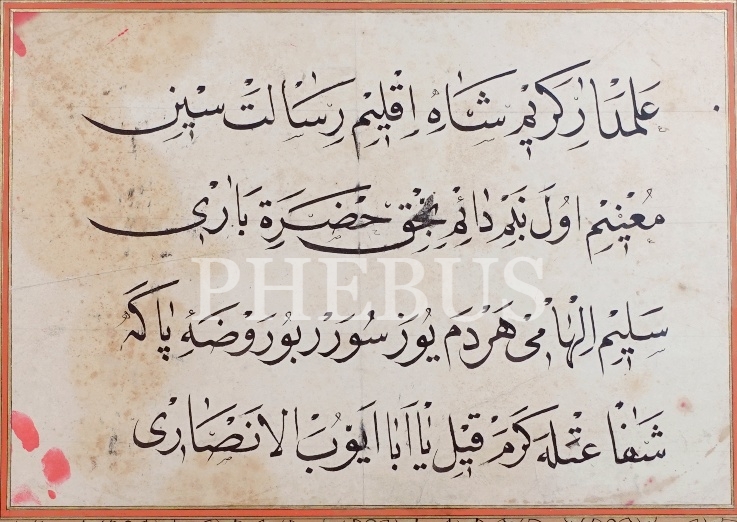 علمدار كريم شاه اقليم رسالت سين
معينم اول بنم دائم بحق حضرة بارى
سليم الهامى هردم يوز سورر بو روضه پاكه
شفاعتله كرم قيل يا ابا ايوب الانصارى
PHEBUS